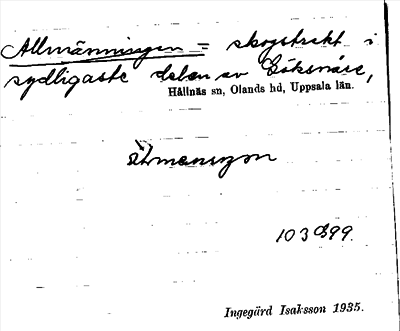 Allmänningen = skogstrakt i
sydligaste delen av Löksnäre,
Hållnäs sn, Olands hd, Uppsala län.
103 899.
Ingegärd Isaksson 1935.